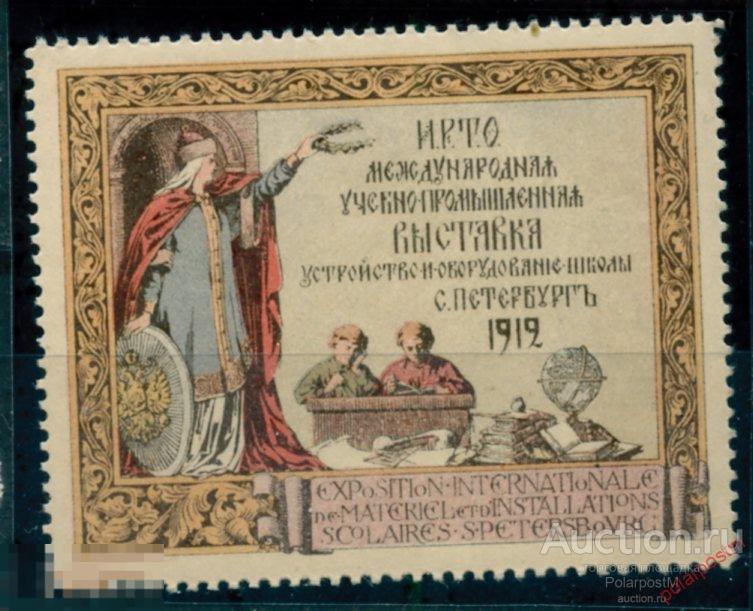 И.Р.Т.О.
МЕЖДУНАРОДНАЯ
УЧЕБНО-ПРОМЫШЛЕННАЯ
ВЫСТАВКА
УСТРОЙСТВО·И·ОБОРУДОВАНІЕ·ШКОЛЫ
С.ПЕТЕРБУРГЪ
1912
EXPOSITION·INTERNATIONALE
DE·MATERIEL ET D'INSTALLATIONS
SCOLAIRES·S·PETERSBOVRG
Auction.ru
торговая площадка
PolarpostM
auction.ru
polarpost.ru